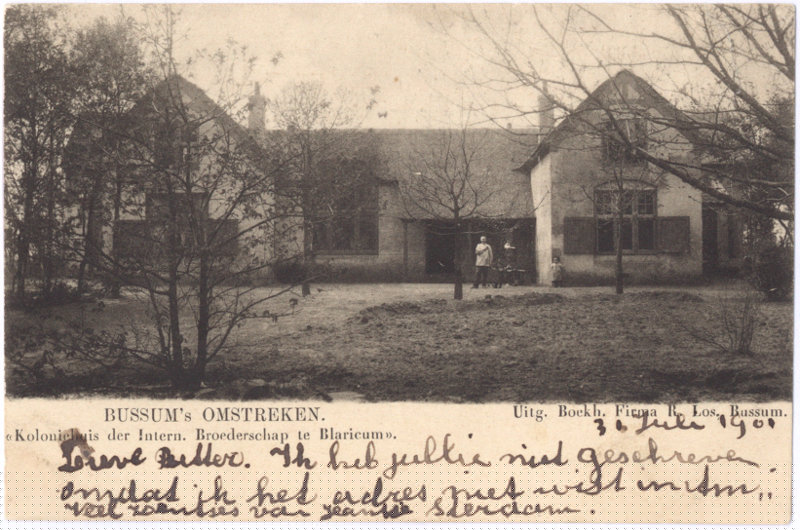 BUSSUM's OMSTREKEN.
Uitg. Boekh. Firma R. Los. Bussum.
«Koloniehuis der Intern. Broederschap te Blaricum».
31 Juli 1901
Lieve Better. Ik heb jullie niet geschreven
omdat ik het adres niet wist in Am,,
Veel zoentjes van Jeanne sterdam.